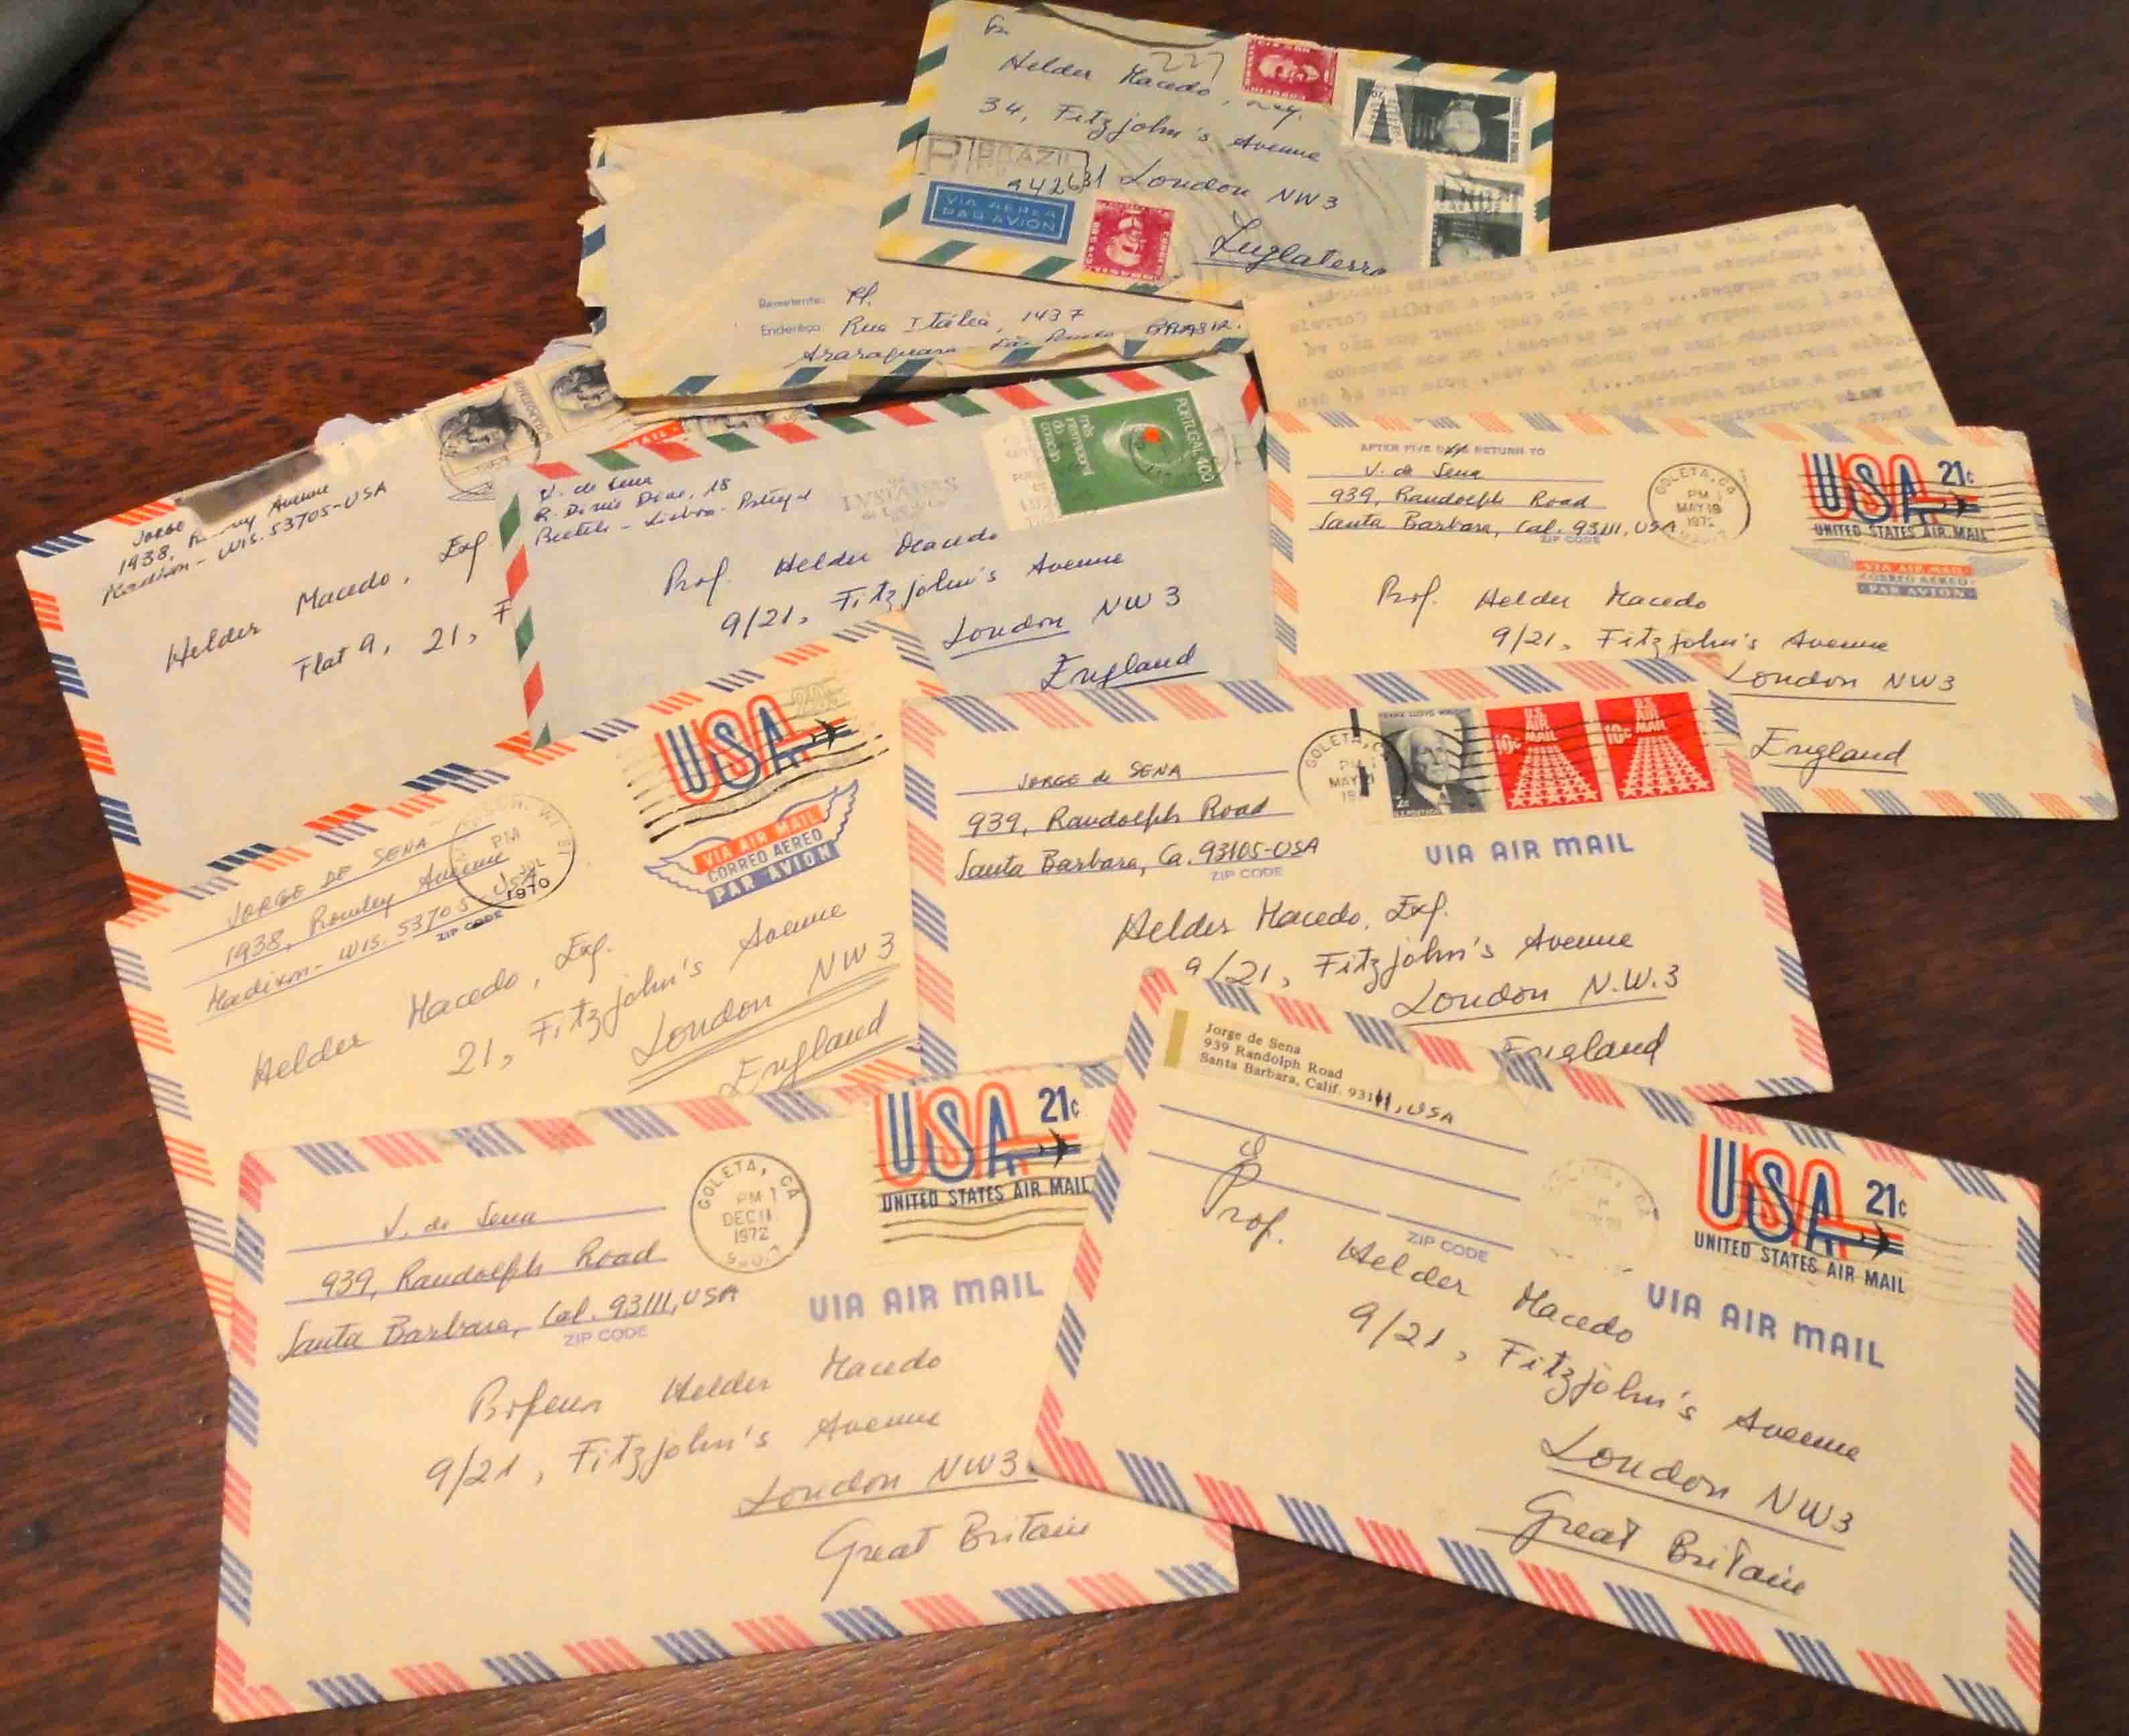 Helder Macedo,
34, Fitzjohn's Avenue
London NW3
Inglaterra
BRAZIL
942631
VIA AEREA
PAR AVION
Remetente:
Endereço: Rua Itália, 1437
Araraquara - São Paulo - BRASIL.
Jorge
1938, Avenue
Madison - Wis. 53705-USA
Helder Macedo, Esq.
Flat 9, 21, F
J. de Sena
R. Dinis Dias, 18
Lisboa - Portugal
PORTUGAL 1$00
mês
internacional
do
coração
Prof. Helder Macedo
9/21, Fitzjohn's Avenue
London NW3
England
AFTER FIVE DAYS RETURN TO
J. de Sena
939, Randolph Road
Santa Barbara, Cal. 93111, USA
ZIP CODE
GOLETA, CA
PM
MAY 19
1972
USA 21c
UNITED STATES AIR MAIL
VIA AIR MAIL
CORREO AEREO
PAR AVION
Prof. Helder Macedo
9/21, Fitzjohn's Avenue
London NW3
England
JORGE DE SENA
1938, Rowley Avenue
Madison - Wis. 53705
USA
ZIP CODE
PM
JUL
1970
USA
VIA AIR MAIL
CORREO AEREO
PAR AVION
Helder Macedo, Esq.
21, Fitzjohn's Avenue
London NW3
England
JORGE de SENA
939, Randolph Road
Santa Barbara, Ca. 93105-USA
ZIP CODE
GOLETA, C
PM
MAY 21
FRANK LLOYD WRIGHT
2c
U.S.
AIR
MAIL
10c
U.S.
AIR
MAIL
10c
VIA AIR MAIL
Helder Macedo, Esq.
9/21, Fitzjohn's Avenue
London N.W.3
England
J. de Sena
939, Randolph Road
Santa Barbara, Cal. 93111, USA
ZIP CODE
GOLETA, CA
PM
DEC 11
1972
USA 21c
UNITED STATES AIR MAIL
VIA AIR MAIL
Professor Helder Macedo
9/21, Fitzjohn's Avenue
London NW3
Great Britain
Jorge de Sena
939 Randolph Road
Santa Barbara, Calif. 93111, USA
ZIP CODE
USA 21c
UNITED STATES AIR MAIL
VIA AIR MAIL
Prof. Helder Macedo
9/21, Fitzjohn's Avenue
London NW3
Great Britain